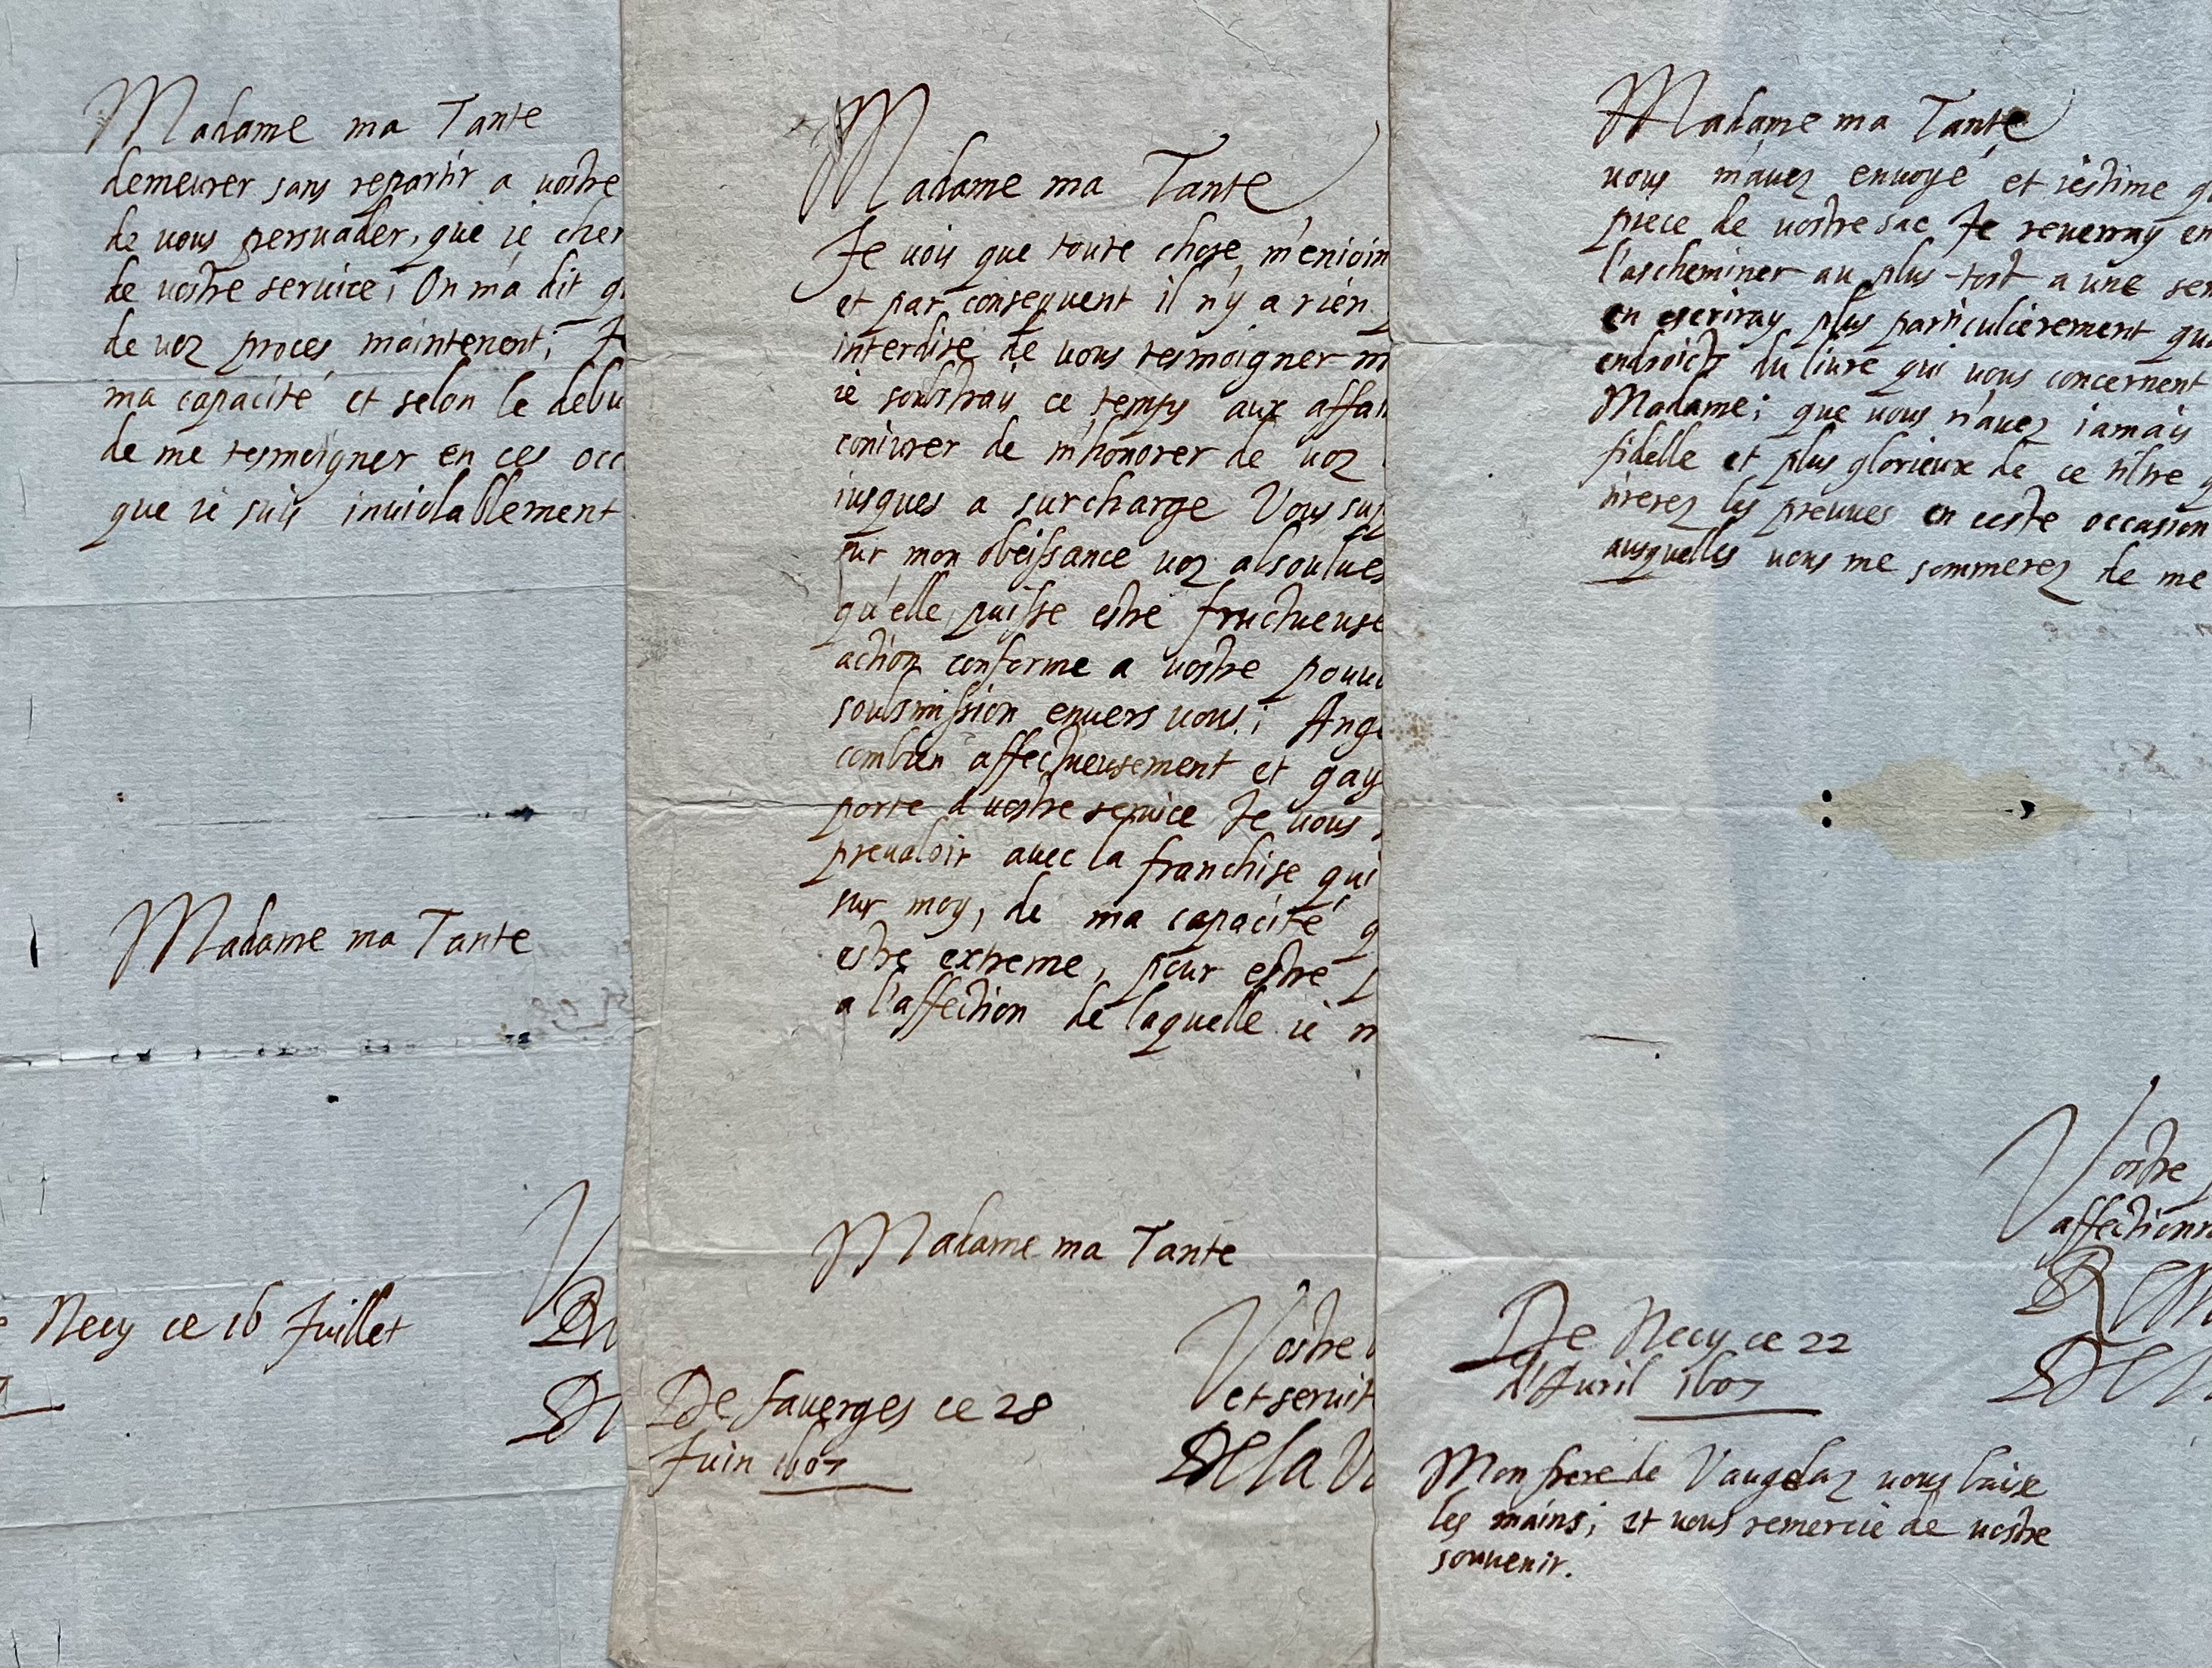 Madame ma Tante
demeurer sans repartir a vostre
de vous persuader, que ie cher
de vostre seruice; On m'a dit q
de voz proces maintenent; Je
ma capacité et selon le debu
de me tesmoigner en ces occ
que ie suis inuiolablement
Madame ma Tante
Necy ce 16 Juillet
Madame ma Tante
Je vois que toute chose, m'enioin
et par consequent il n'y a rien
interdire de vous tesmoigner m
ie soubstray ce temps aux affai
coniurer de m'honorer de voz
iusques a surcharge Vous sup
sur mon obeissance voz absolues
qu'elle puisse estre fructueuse
action conforme a vostre pouuo
soubmission enuers vous;
combien affectueusement et gay
porte a vostre seruice Je vous
preualoir auec la franchise qui
sur moy, de ma capacité q
estre extreme, pour estre p
a l'affection de laquelle ie n
Madame ma Tante
Vostre
et seruit
De la V
De Fauerges ce 28
Juin 1607
Madame ma Tante
vous m'auez enuoyé et i'estime q
piece de vostre sac Je reuerray en
l'ascheminer au plus-tost a une sen
en escriray plus particulierement que
endroicts du liure qui vous concernent
Madame; que vous n'auez iamais
fidelle et plus glorieux de ce tiltre q
tirerez les preuues en ceste occasion
ausquelles vous me sommerez de me
Vostre
affectionn
De Necy ce 22
d'Auril 1607
Mon frere de Vaugelaz vous baise
les mains; et vous remercie de vostre
souuenir.